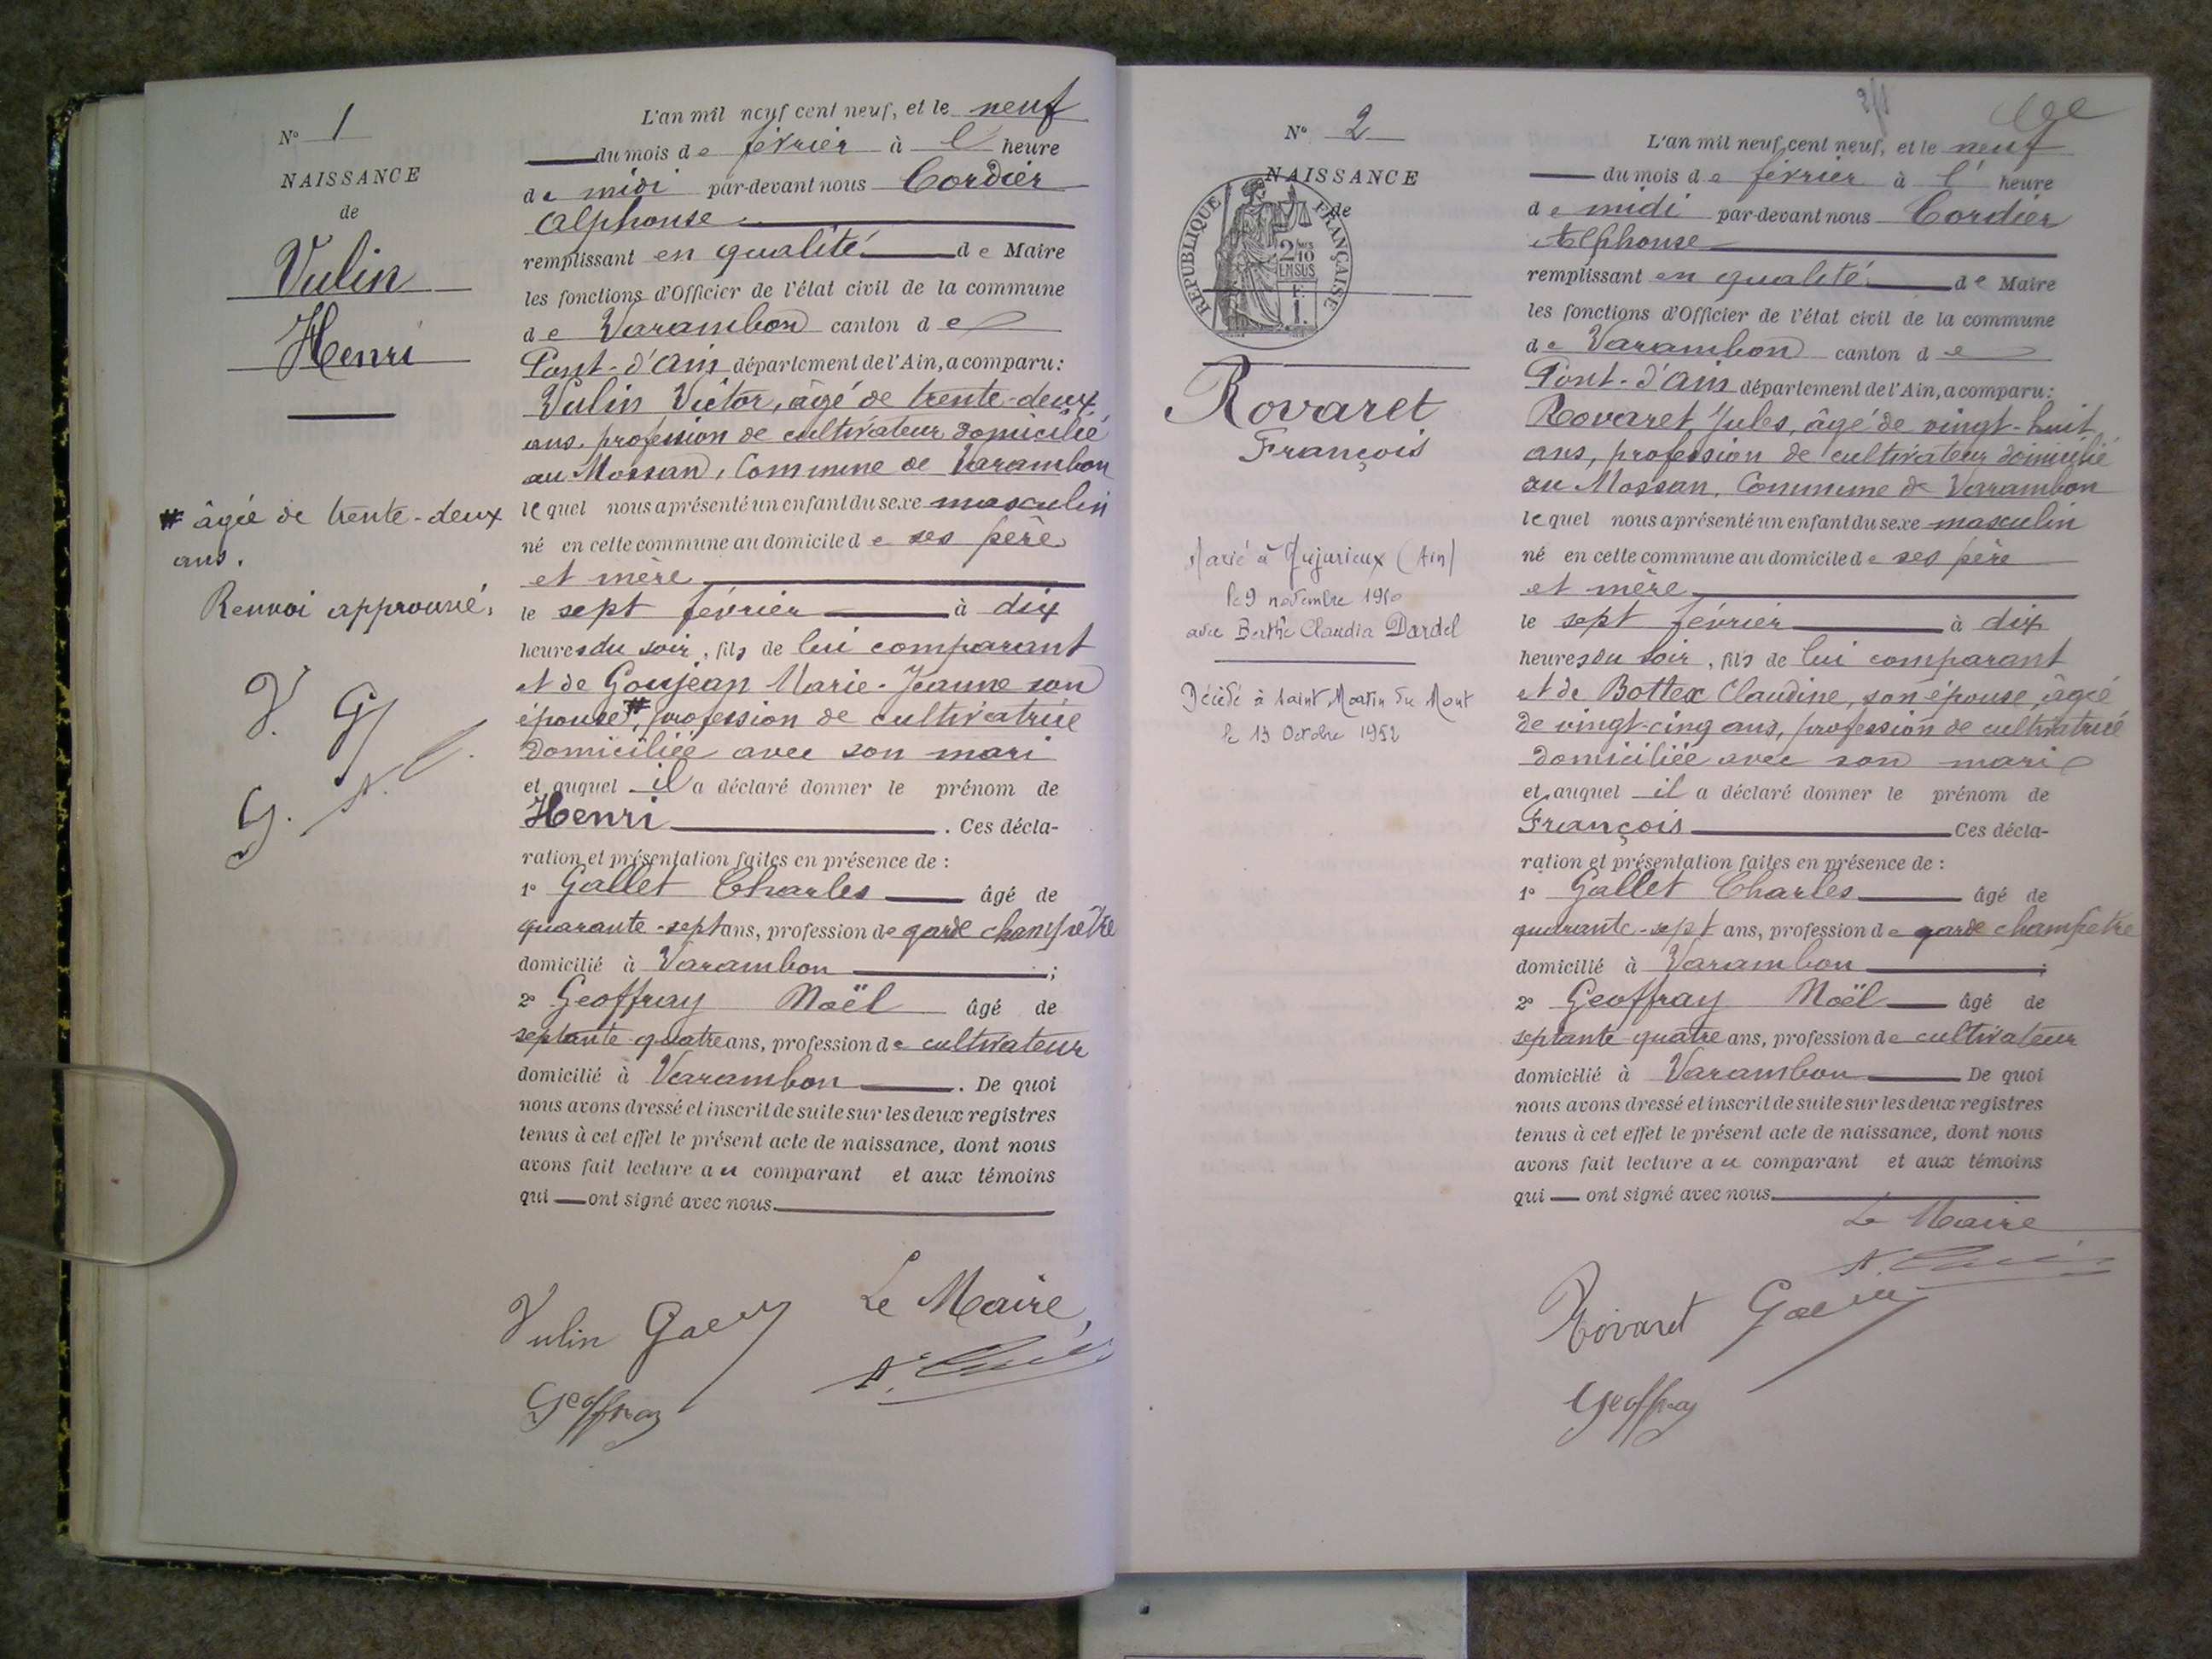 N° 1
NAISSANCE
de
Vulin
Henri
# âgée de trente-deux
ans.
Renvoi approuvé.
V. G
G. A. C.
L'an mil neuf cent neuf, et le neuf
du mois de février à l' heure
de midi par-devant nous Cordier
Alphonse
remplissant en qualité de Maire
les fonctions d'Officier de l'état civil de la commune
de Varambon canton de
Pont-d'Ain département de l'Ain, a comparu:
Vulin Victor, âgé de trente-deux
ans, profession de cultivateur domicilié
au Mossan, Commune de Varambon
lequel nous a présenté un enfant du sexe masculin
né en cette commune au domicile de ses père
et mère
le sept février à dix
heures du soir, fils de lui comparant
et de Goujean Marie-Jeanne son
épouse #, profession de cultivatrice
domiciliée avec son mari
et auquel il a déclaré donner le prénom de
Henri . Ces décla-
ration et présentation faites en présence de :
1° Gallet Charles âgé de
quarante-sept ans, profession de garde champêtre
domicilié à Varambon ;
2° Geoffray Noël âgé de
septante quatre ans, profession de cultivateur
domicilié à Varambon . De quoi
nous avons dressé et inscrit de suite sur les deux registres
tenus à cet effet le présent acte de naissance, dont nous
avons fait lecture au comparant et aux témoins
qui ont signé avec nous.
Le Maire,
Vulin
Geoffray
N° 2
NAISSANCE
de
REPUBLIQUE FRANÇAISE
2/10
EN SUS
1.
Rovaret
François
Marié à Jujurieux (Ain)
le 9 novembre
avec Berthe Claudia Dardel
Décédé à Saint Martin du Mont
le 13 Octobre 1952
L'an mil neuf cent neuf, et le neuf
du mois de février à l' heure
de midi par-devant nous Cordier
Alphonse
remplissant en qualité de Maire
les fonctions d'Officier de l'état civil de la commune
de Varambon canton de
Pont-d'Ain département de l'Ain, a comparu:
Rovaret Jules, âgé de vingt-huit
ans, profession de cultivateur domicilié
au Mossan, Commune de Varambon
lequel nous a présenté un enfant du sexe masculin
né en cette commune au domicile de ses père
et mère
le sept février à dix
heures du soir, fils de lui comparant
et de Bottex Claudine, son épouse, âgée
de vingt-cinq ans, profession de cultivatrice
domiciliée avec son mari
et auquel il a déclaré donner le prénom de
François Ces décla-
ration et présentation faites en présence de :
1° Gallet Charles âgé de
quarante-sept ans, profession de garde champêtre
domicilié à Varambon ;
2° Geoffray Noël âgé de
septante quatre ans, profession de cultivateur
domicilié à Varambon De quoi
nous avons dressé et inscrit de suite sur les deux registres
tenus à cet effet le présent acte de naissance, dont nous
avons fait lecture au comparant et aux témoins
qui ont signé avec nous.
Le Maire
Rovaret
Geoffray